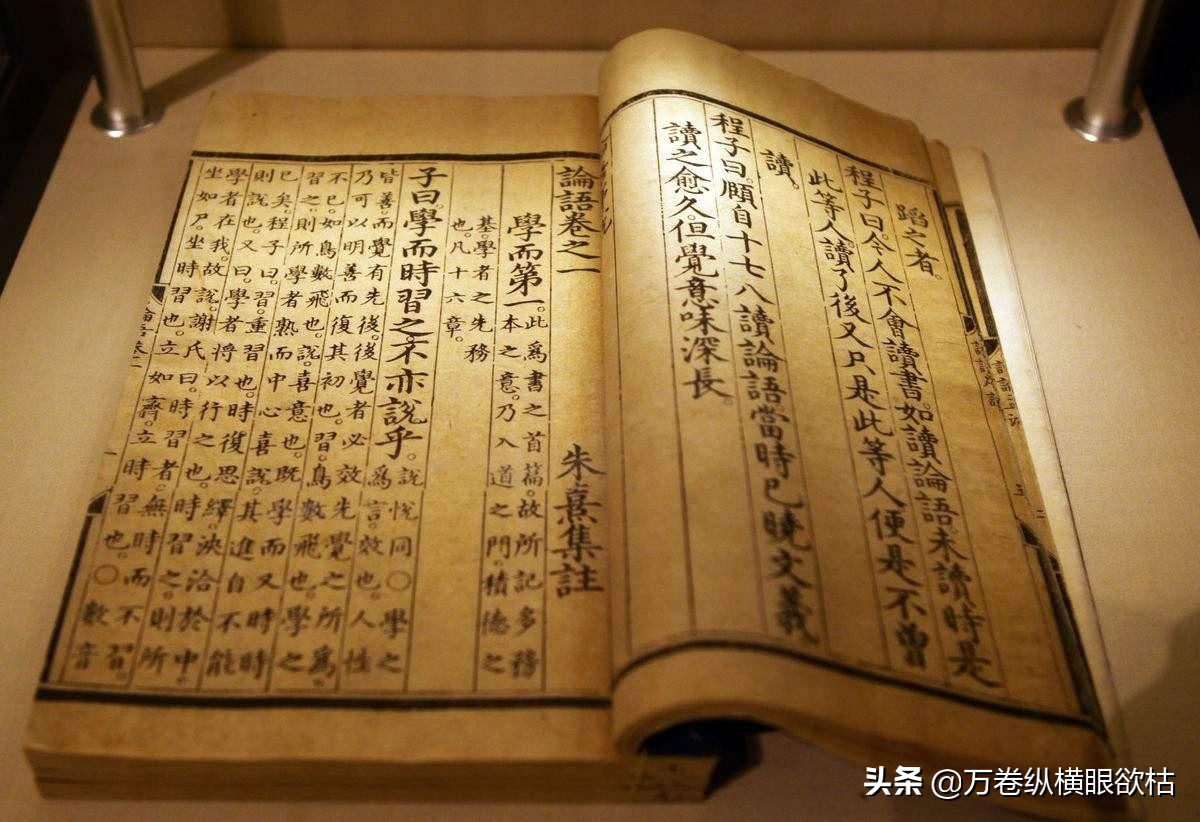 蹈之者。
程子曰。今人不會讀書。如讀論語。未讀時是
此等人。讀了後又只是此等人。便是不曾
讀。
程子曰。頤自十七八讀論語。當時已曉文義
讀之愈久。但覺意味深長。
論語卷之一 朱熹集註
學而第一。此爲書之首篇。故所記多務
本之意。乃入道之門。積德之
基。學者之先務
也。凡十六章。
子曰。學而時習之。不亦說乎。說悅同○學之
爲言效也。人性
皆善。而覺有先後。後覺者必效先覺之所爲。
乃可以明善而復其初也。習。鳥數飛也。學之
不已。如鳥數飛也。說。喜意也。既學而又時時
習之。則所學者熟而中心喜說。其進自不能
已矣。程子曰。習。重習也。時復思繹。浹洽於中。
則說也。又曰。學者將以行之也。時習之。則所
學者在我。故說。謝氏曰。時習者。無時而不習。
坐如尸。坐時習也。立如齊。立時習也。○數音
头条 @万卷纵横眼欲枯